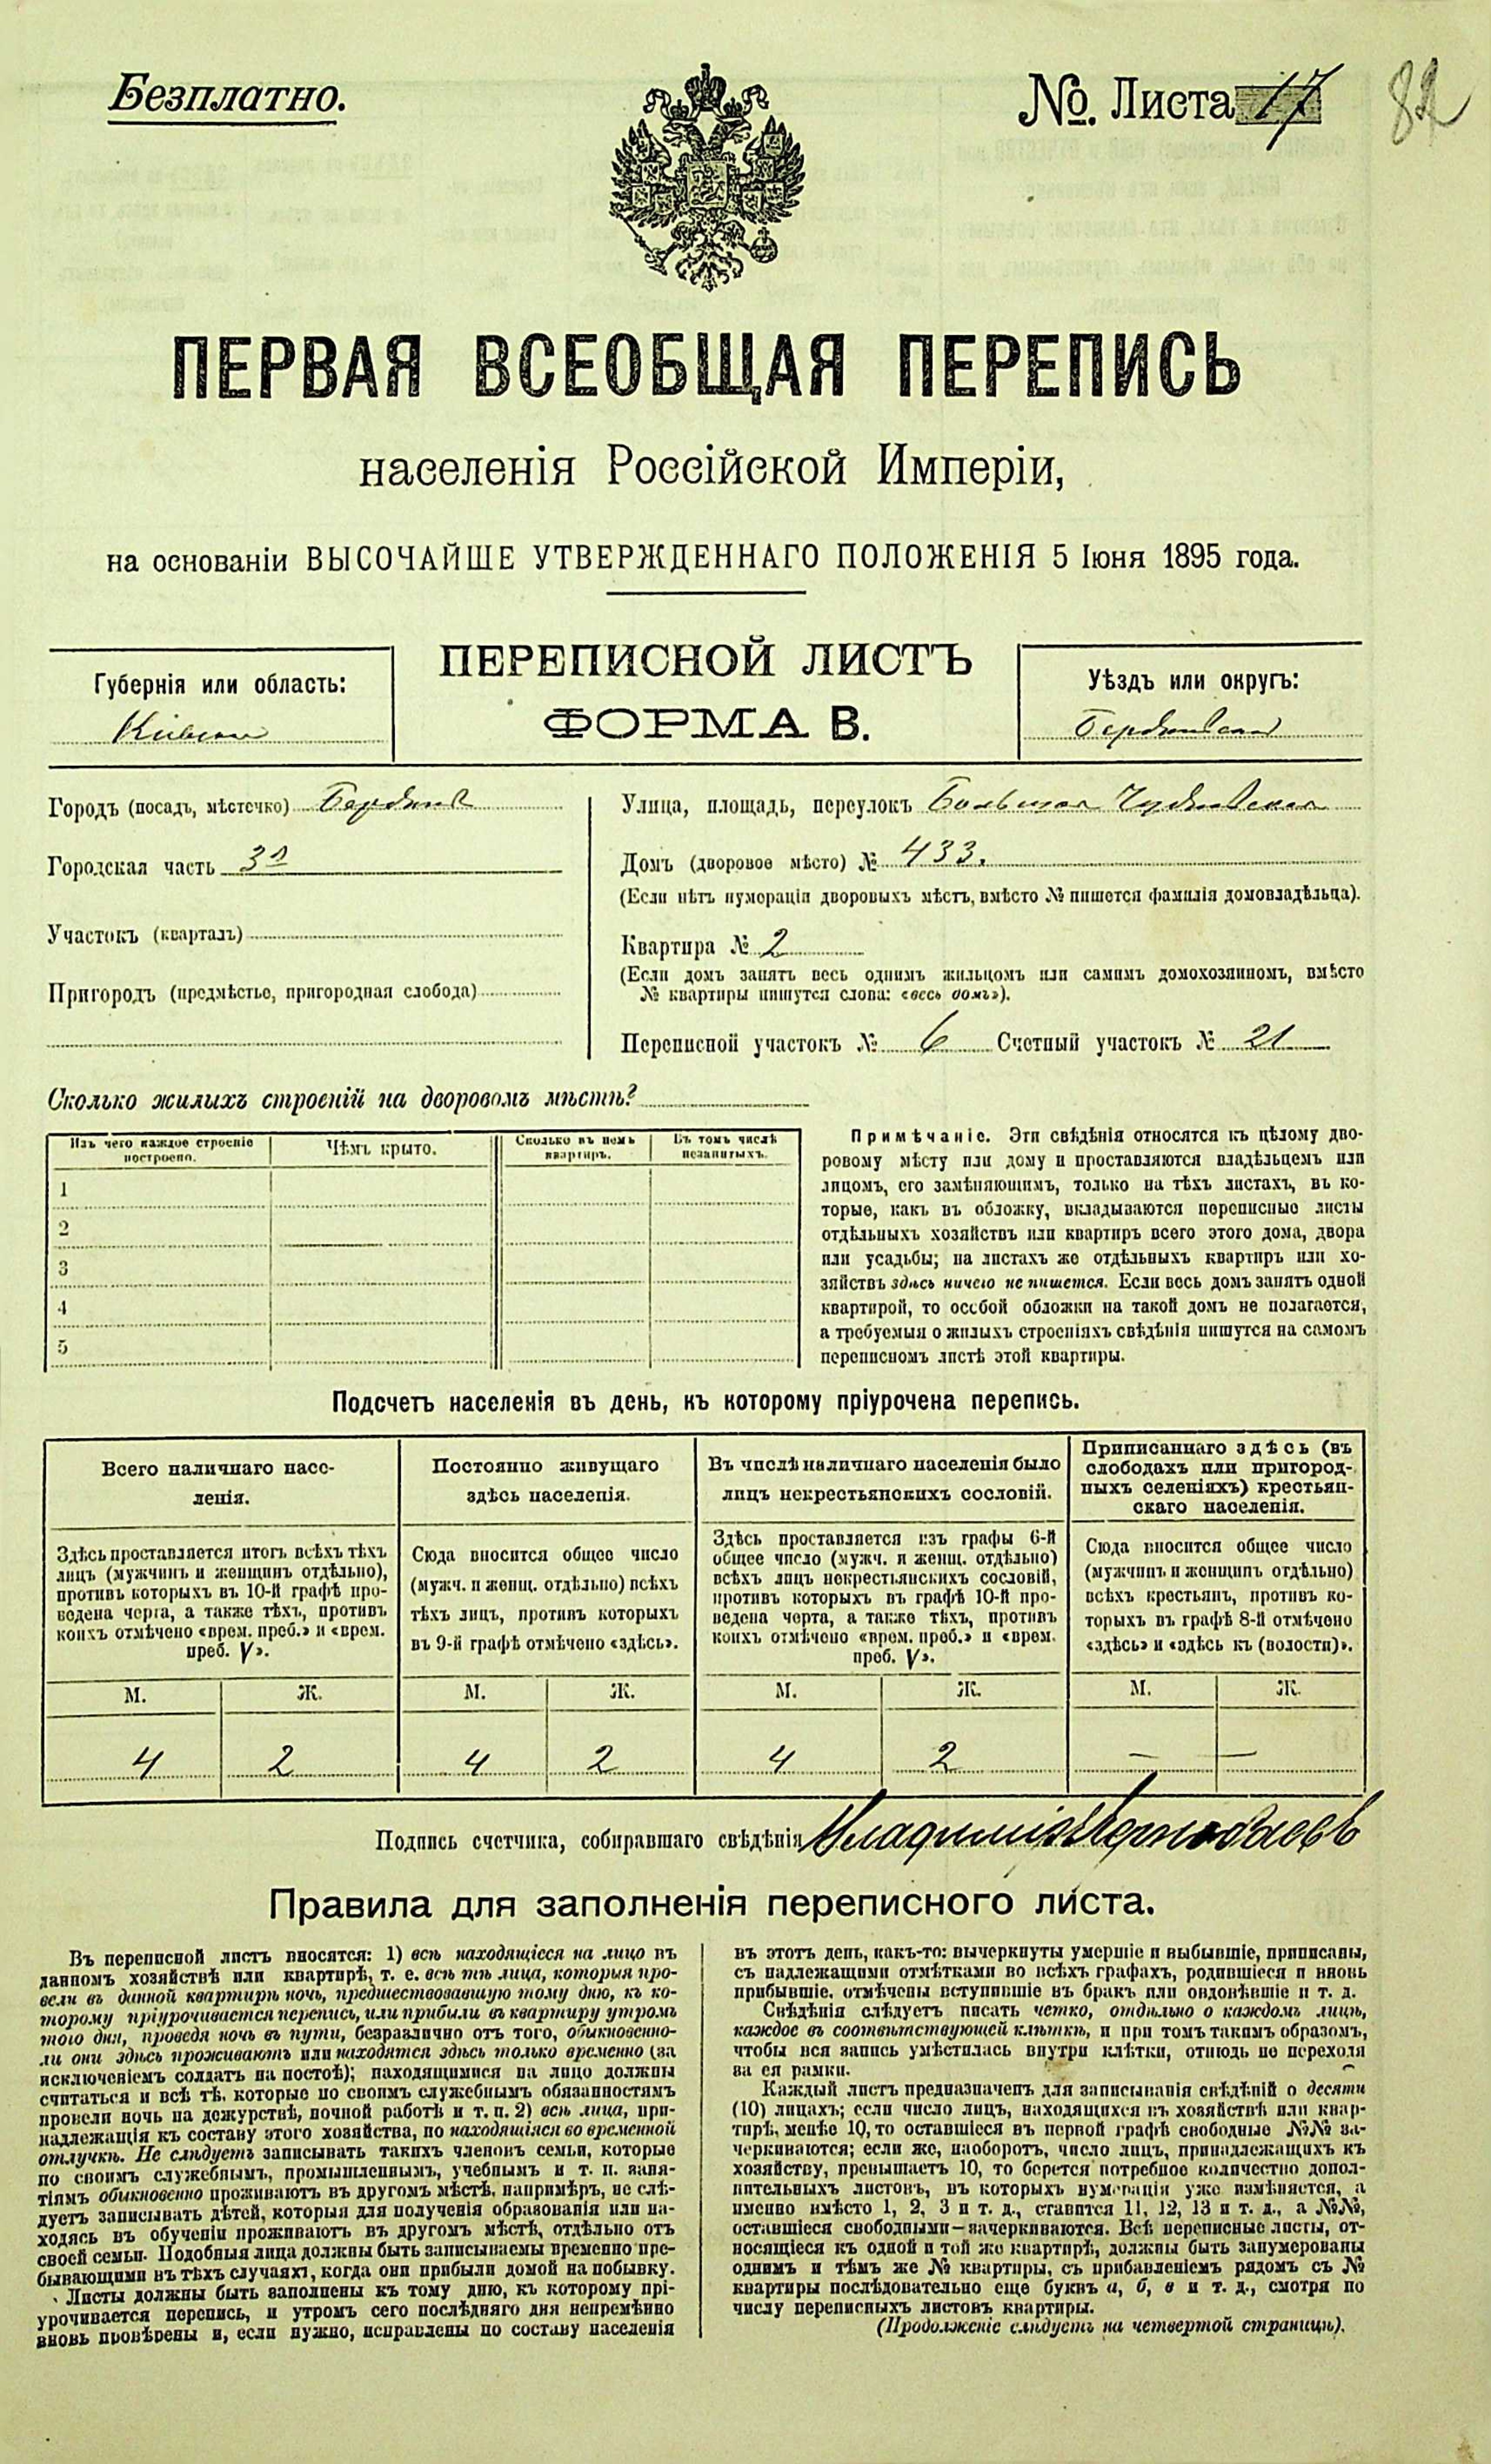 Безплатно.
№. Листа 17
82
ПЕРВАЯ ВСЕОБЩАЯ ПЕРЕПИСЬ
населенія Россійской Имперіи,
на основаніи ВЫСОЧАЙШЕ УТВЕРЖДЕННАГО ПОЛОЖЕНІЯ 5 Іюня 1895 года.
Губернія или область:
Кіевская
ПЕРЕПИСНОЙ ЛИСТЪ
ФОРМА В.
Уѣздъ или округъ:
Бердичевскій
Городъ (посадъ, мѣстечко) Бердичевъ
Городская часть 3я
Участокъ (кварталъ)
Пригородъ (предмѣстье, пригородная слобода)
Улица, площадь, переулокъ Большая Чудновская
Домъ (дворовое мѣсто) № 433.
(Если нѣтъ нумераціи дворовыхъ мѣстъ, вмѣсто № пишется фамилія домовладѣльца).
Квартира № 2
(Если домъ занятъ весь однимъ жильцомъ или самимъ домохозяиномъ, вмѣсто
№ квартиры пишутся слова: «весь домъ»).
Переписной участокъ № 6 Счетный участокъ № 21
Сколько жилыхъ строеній на дворовомъ мѣстѣ?
Изъ чего каждое строеніе
построено.
Чѣмъ крыто.
Сколько въ немъ
квартиръ.
Въ томъ числѣ
незанятыхъ.
1
2
3
4
5
Примѣчаніе. Эти свѣдѣнія относятся къ цѣлому дво-
ровому мѣсту или дому и проставляются владѣльцемъ или
лицомъ, его замѣняющимъ, только на тѣхъ листахъ, въ ко-
торые, какъ въ обложку, вкладываются переписные листы
отдѣльныхъ хозяйствъ или квартиръ всего этого дома, двора
или усадьбы; на листахъ же отдѣльныхъ квартиръ или хо-
зяйствъ здѣсь ничего не пишется. Если весь домъ занятъ одной
квартирой, то особой обложки на такой домъ не полагается,
а требуемыя о жилыхъ строеніяхъ свѣдѣнія пишутся на самомъ
переписномъ листѣ этой квартиры.
Подсчетъ населенія въ день, къ которому пріурочена перепись.
Всего наличнаго насе-
ленія.
Постоянно живущаго
здѣсь населенія.
Въ числѣ наличнаго населенія было
лицъ некрестьянскихъ сословій.
Приписаннаго здѣсь (въ
слободахъ или пригород-
ныхъ селеніяхъ) крестьян-
скаго населенія.
Здѣсь проставляется итогъ всѣхъ тѣхъ
лицъ (мужчинъ и женщинъ отдѣльно),
противъ которыхъ въ 10-й графѣ про-
ведена черта, а также тѣхъ, противъ
коихъ отмѣчено «врем. преб.» и «врем.
преб. V».
Сюда вносится общее число
(мужч. и женщ. отдѣльно) всѣхъ
тѣхъ лицъ, противъ которыхъ
въ 9-й графѣ отмѣчено «здѣсь».
Здѣсь проставляется изъ графы 6-й
общее число (мужч. и женщ. отдѣльно)
всѣхъ лицъ некрестьянскихъ сословій,
противъ которыхъ въ графѣ 10-й про-
ведена черта, а также тѣхъ, противъ
коихъ отмѣчено «врем. преб.» и «врем.
преб. V».
Сюда вносится общее число
(мужчинъ и женщинъ отдѣльно)
всѣхъ крестьянъ, противъ ко-
торыхъ въ графѣ 8-й отмѣчено
«здѣсь» и «здѣсь къ (волости)».
М. Ж. М. Ж. М. Ж. М. Ж.
4 2 4 2 4 2 — —
Подпись счетчика, собиравшаго свѣдѣнія Владиміръ
Правила для заполненія переписного листа.
Въ переписной листъ вносятся: 1) всѣ находящіеся на лицо въ
данномъ хозяйствѣ или квартирѣ, т. е. всѣ тѣ лица, которыя про-
вели въ данной квартирѣ ночь, предшествовавшую тому дню, къ ко-
торому пріурочивается перепись, или прибыли въ квартиру утромъ
того дня, проведя ночь въ пути, безразлично отъ того, обыкновенно-
ли они здѣсь проживаютъ или находятся здѣсь только временно (за
исключеніемъ солдатъ на постоѣ); находящимися на лицо должны
считаться и всѣ тѣ, которые по своимъ служебнымъ обязанностямъ
провели ночь на дежурствѣ, ночной работѣ и т. п. 2) всѣ лица, при-
надлежащія къ составу этого хозяйства, но находящіяся во временной
отлучкѣ. Не слѣдуетъ записывать такихъ членовъ семьи, которые
по своимъ служебнымъ, промышленнымъ, учебнымъ и т. п. заня-
тіямъ обыкновенно проживаютъ въ другомъ мѣстѣ, напримѣръ, не слѣ-
дуетъ записывать дѣтей, которыя для полученія образованія или на-
ходясь въ обученіи проживаютъ въ другомъ мѣстѣ, отдѣльно отъ
своей семьи. Подобныя лица должны быть записываемы временно пре-
бывающими въ тѣхъ случаяхъ, когда они прибыли домой на побывку.
Листы должны быть заполнены къ тому дню, къ которому прі-
урочивается перепись, и утромъ сего послѣдняго дня непремѣнно
вновь провѣрены и, если нужно, исправлены по составу населенія
въ этотъ день, какъ-то: вычеркнуты умершіе и выбывшіе, приписаны,
съ надлежащими отмѣтками во всѣхъ графахъ, родившіеся и вновь
прибывшіе, отмѣчены вступившіе въ бракъ или овдовѣвшіе и т. д.
Свѣдѣнія слѣдуетъ писать четко, отдѣльно о каждомъ лицѣ,
каждое въ соотвѣтствующей клѣткѣ, и при томъ такимъ образомъ,
чтобы вся запись умѣстилась внутри клѣтки, отнюдь не переходя
за ея рамки.
Каждый листъ предназначенъ для записыванія свѣдѣній о десяти
(10) лицахъ; если число лицъ, находящихся въ хозяйствѣ или квар-
тирѣ, менѣе 10, то оставшіеся въ первой графѣ свободные №№ за-
черкиваются; если же, наоборотъ, число лицъ, принадлежащихъ къ
хозяйству, превышаетъ 10, то берется потребное количество допол-
нительныхъ листовъ, въ которыхъ нумерація уже измѣняется, а
именно вмѣсто 1, 2, 3 и т. д., ставится 11, 12, 13 и т. д., а №№,
оставшіеся свободными—зачеркиваются. Всѣ переписные листы, от-
носящіеся къ одной и той же квартирѣ, должны быть занумерованы
однимъ и тѣмъ же № квартиры, съ прибавленіемъ рядомъ съ №
квартиры послѣдовательно еще буквъ а, б, в и т. д., смотря по
числу переписныхъ листовъ квартиры.
(Продолженіе слѣдуетъ на четвертой страницѣ).